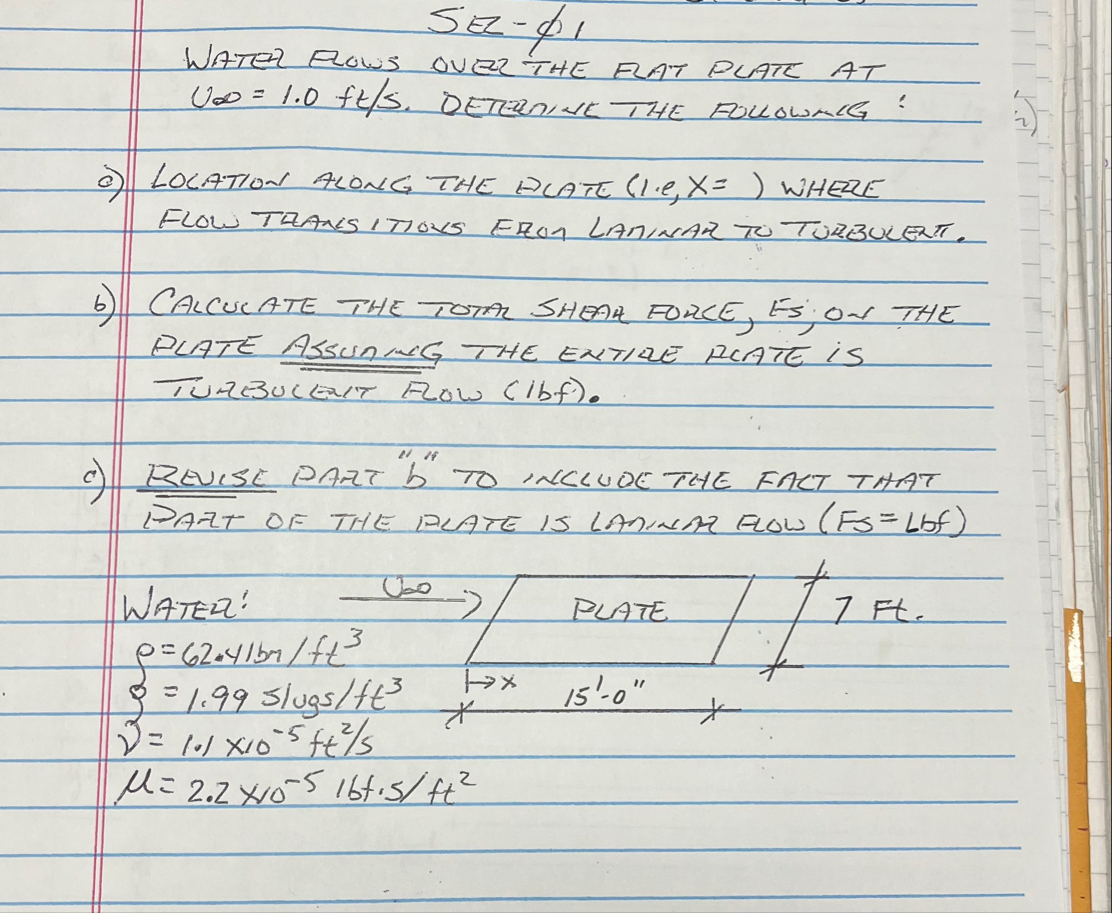 SEZ-Ø1
WATER FLOWS OVER THE FLAT PLATE AT
U∞ = 1.0 ft/s. DETERMINE THE FOLLOWING:
a) LOCATION ALONG THE PLATE (i.e, X= ) WHERE
FLOW TRANSITIONS FROM LAMINAR TO TURBULENT.
b) CALCULATE THE TOTAL SHEAR FORCE, Fs, ON THE
PLATE ASSUMING THE ENTIRE PLATE IS
TURBULENT FLOW (lbf).
c) REVISE PART "b" TO INCLUDE THE FACT THAT
PART OF THE PLATE IS LAMINAR FLOW (Fs=Lbf)
U∞
WATER:
PLATE
7 FT.
ρ = 62.4 lbm/ft³
x
ρ = 1.99 slugs/ft³
15'-0"
ν = 1.1 x10⁻⁵ ft²/s
μ = 2.2 x10⁻⁵ lbf·s/ft²